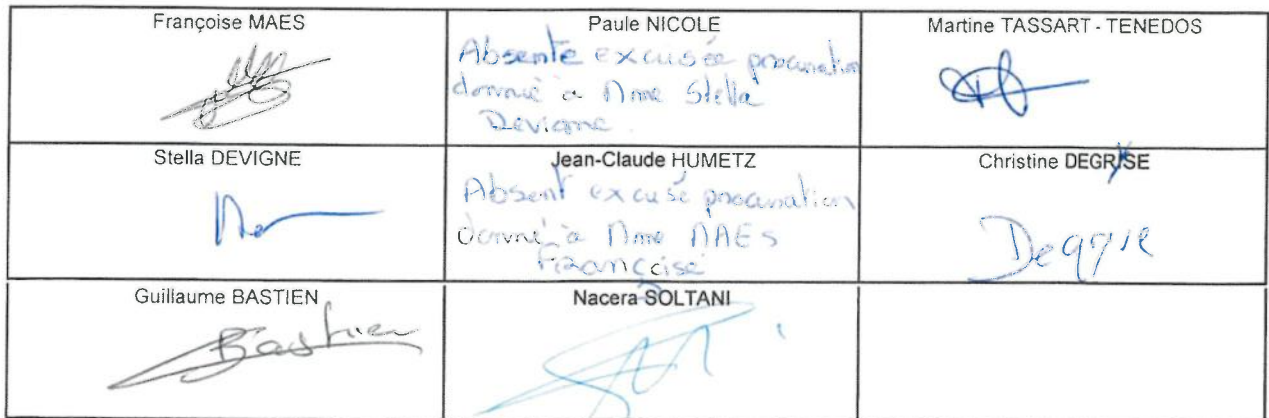 Françoise MAES
Paule NICOLE
Absente excusée procuration
donnée à Mme Stella
Devigne.
Martine TASSART - TENEDOS
Stella DEVIGNE
Jean-Claude HUMETZ
Absent excusé procuration
donné à Mme MAES
Françoise
Christine DEGRYSE
Degryse
Guillaume BASTIEN
Bastien
Nacera SOLTANI